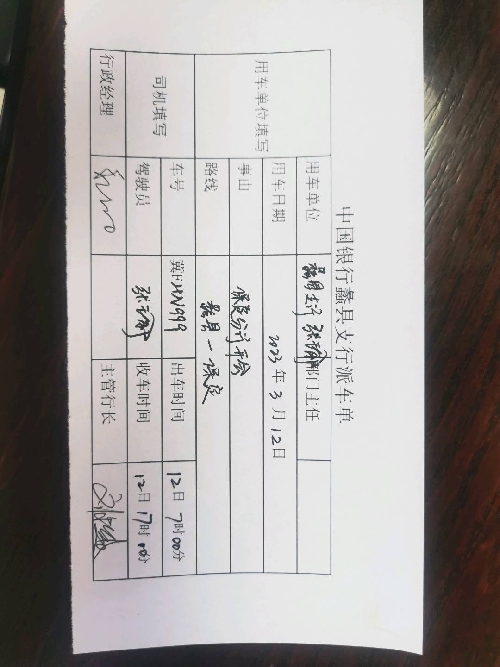 中国银行蠡县支行派车单
用车单位填写 用车单位 蠡县支行 部门主任
用车日期 2023年3月12日
事由 保定分行开会
路线 蠡县一保定
司机填写 车号 出车时间 12日7时00分
驾驶员 收车时间 12日17时00分
行政经理 主管行长